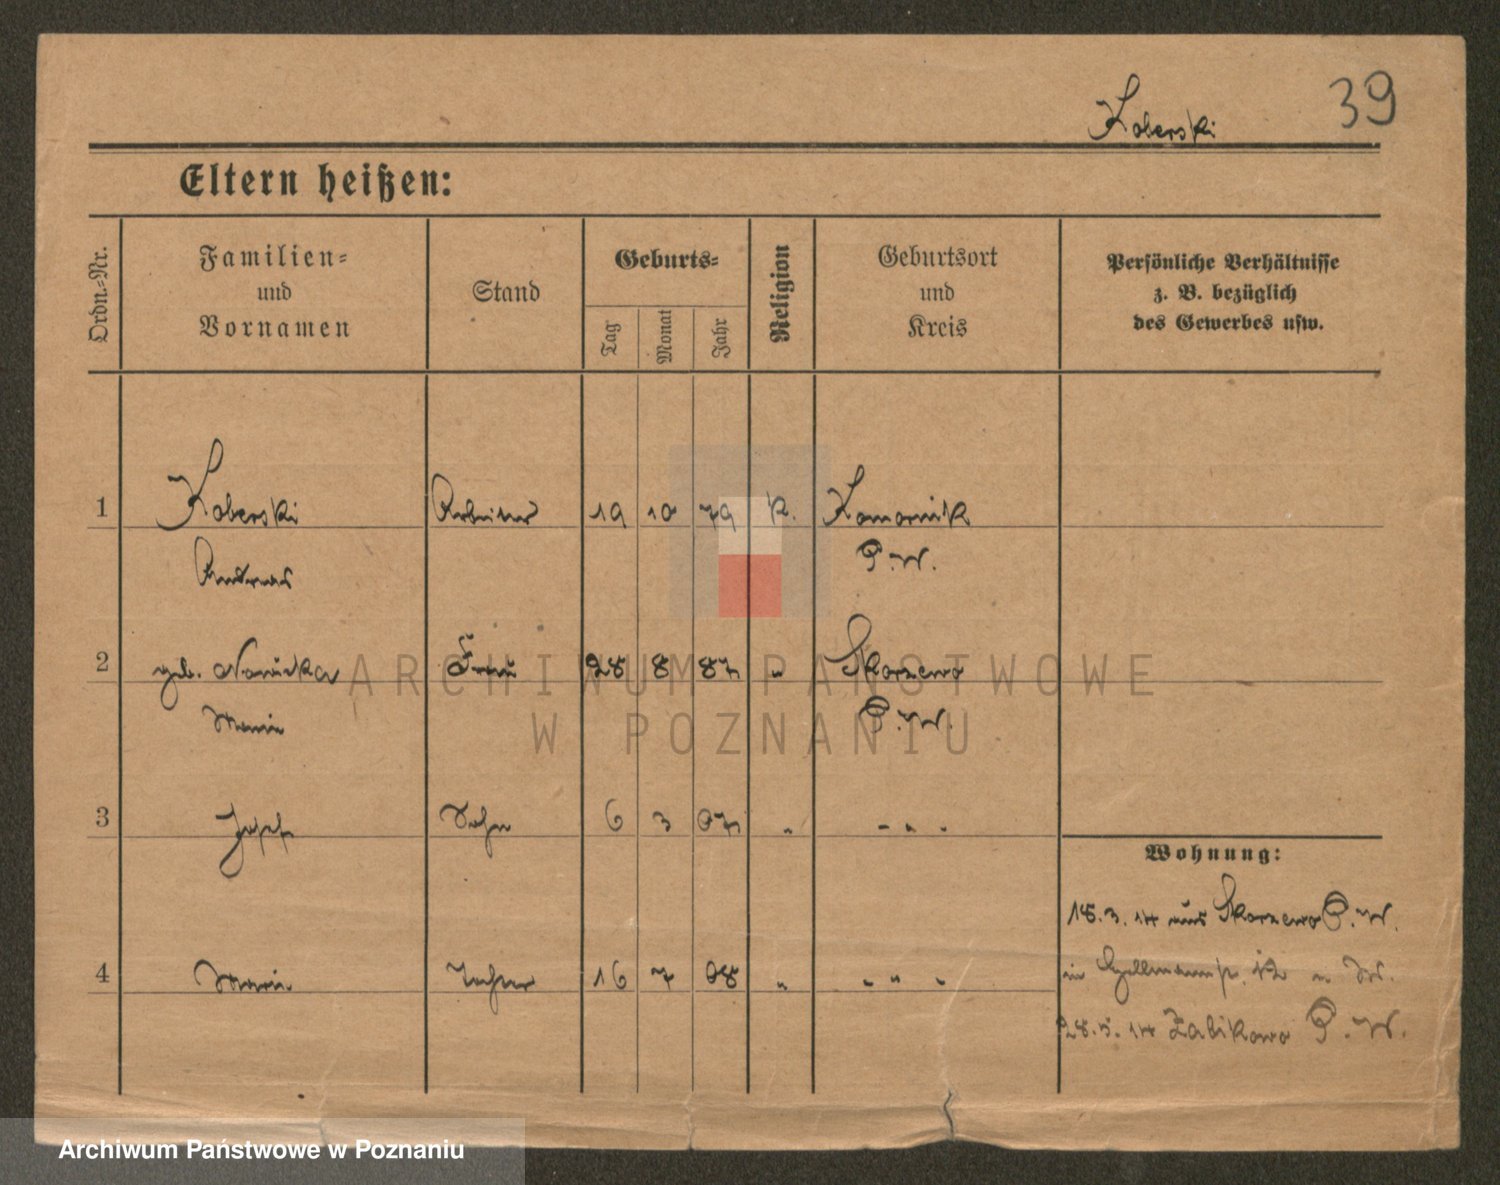 Koberski 39
Eltern heißen:
Ordn.-Nr.
Familien-
und
Vornamen
Stand
Geburts-
Tag
Monat
Jahr
Religion
Geburtsort
und
Kreis
Persönliche Verhältnisse
z. B. bezüglich
des Gewerbes usw.
1 Koberski Arbeiter 19 10 79 k. Komornik
Andreas P. W.
2 geb. Nowicka Frau 28 8 87 " Skorzewo
Maria P. W.
3 Josef Sohn 6 3 07 " - " -
Wohnung:
18.3.14 aus Skorzewo P. W.
4 Maria Tochter 16 7 08 " - " -
in 12
28.5.14 Zabikowo P. W.
ARCHIWUM PAŃSTWOWE
W POZNANIU
Archiwum Państwowe w Poznaniu